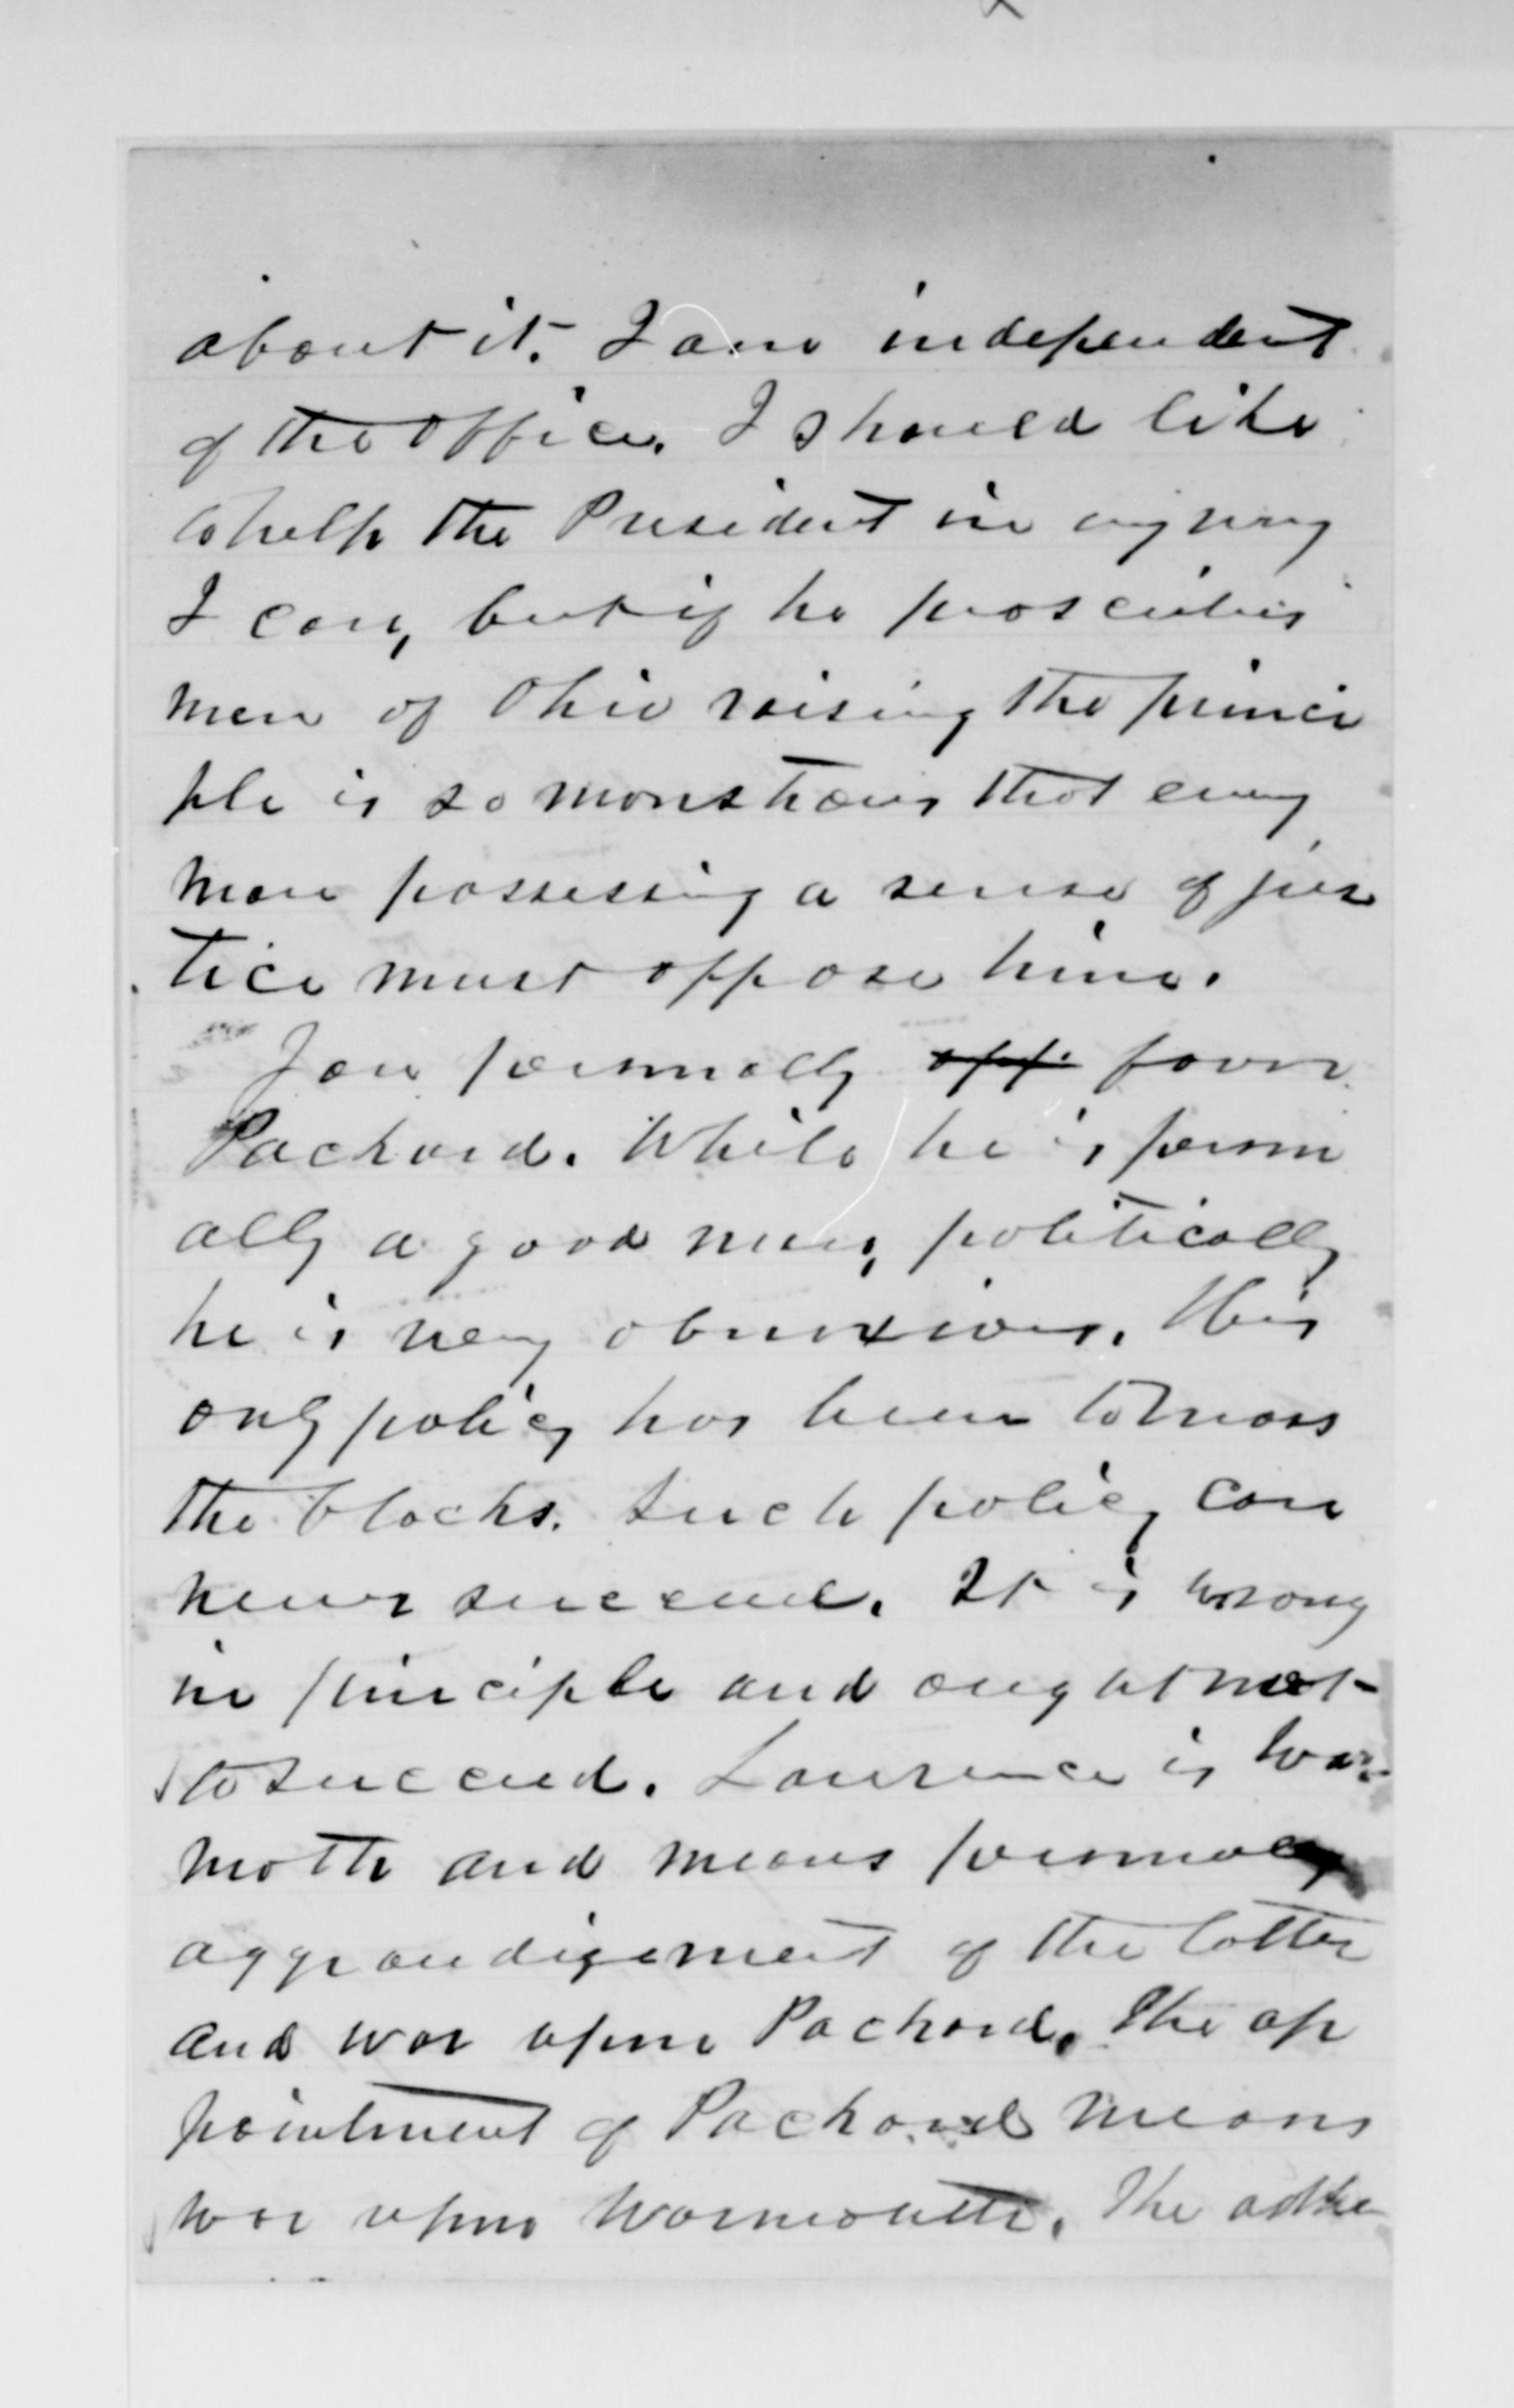 about it. I am independent
of the office. I should like
to help the President in any way
I can, but if he proscribes
men of Ohio raising the princi
ple is so monstrous that every
man possessing a sense of jus
tice must oppose him.
I am personally opp. favor
Packard. While he is person
ally a good man, politically
he is very obnoxious. His
only policy has been to mass
the blacks. Such policy can
never succeed. It is wrong
in principle and ought not
to succeed. Lawrence is War
moth and means personal
aggrandizement of the latter
and war upon Packard. The ap
pointment of Packard means
war upon Warmouth. The adhe